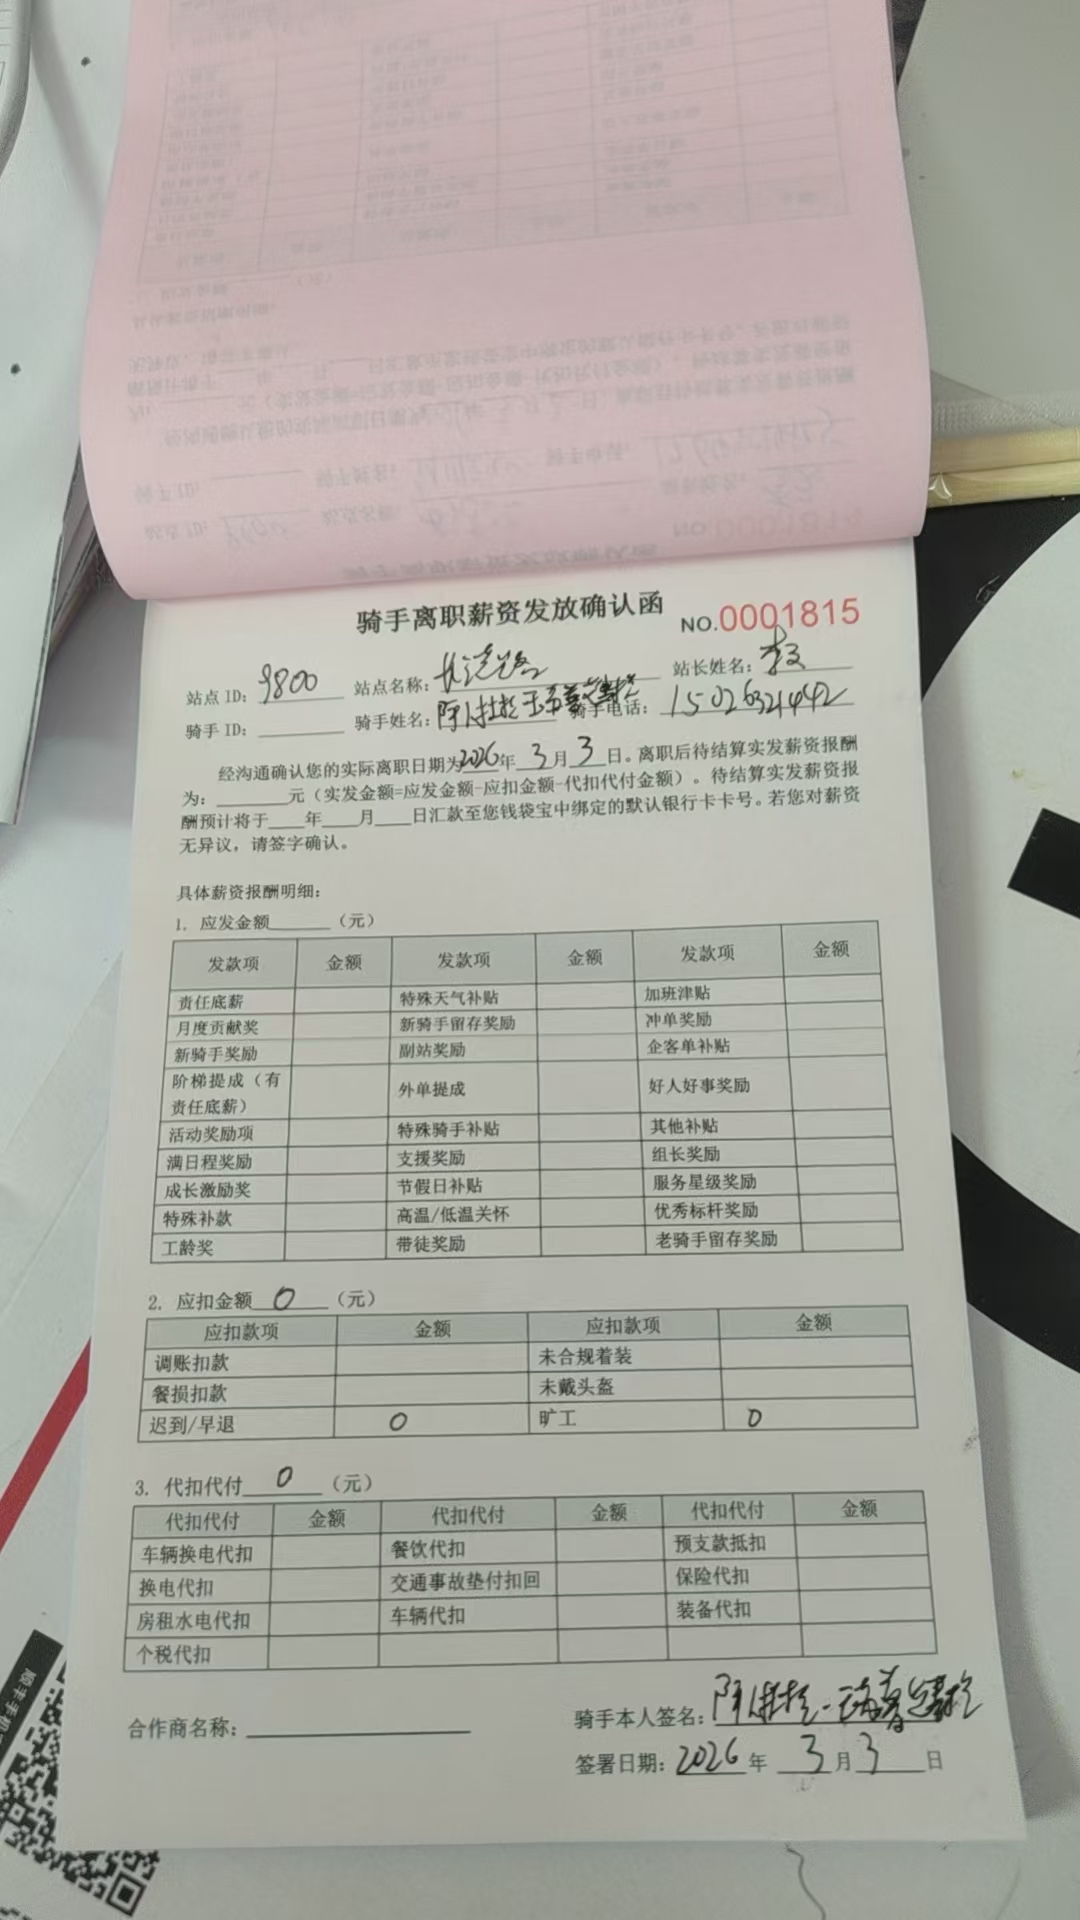 骑手离职薪资发放确认函 NO.0001815
站点 ID: 9800 站点名称: 长清路 站长姓名:
骑手 ID: 骑手姓名: 骑手电话: 15026321442
经沟通确认您的实际离职日期为2026年3月3日。离职后待结算实发薪资报酬
为:______元(实发金额=应发金额-应扣金额-代扣代付金额)。待结算实发薪资报
酬预计将于____年____月____日汇款至您钱袋宝中绑定的默认银行卡卡号。若您对薪资
无异议,请签字确认。
具体薪资报酬明细:
1. 应发金额______(元)
发款项 金额 发款项 金额 发款项 金额
责任底薪 特殊天气补贴 加班津贴
月度贡献奖 新骑手留存奖励 冲单奖励
新骑手奖励 副站奖励 企客单补贴
阶梯提成(有责任底薪) 外单提成 好人好事奖励
活动奖励项 特殊骑手补贴 其他补贴
满日程奖励 支援奖励 组长奖励
成长激励奖 节假日补贴 服务星级奖励
特殊补款 高温/低温关怀 优秀标杆奖励
工龄奖 带徒奖励 老骑手留存奖励
2. 应扣金额 0 (元)
应扣款项 金额 应扣款项 金额
调账扣款 未合规着装
餐损扣款 未戴头盔
迟到/早退 0 旷工 0
3. 代扣代付 0 (元)
代扣代付 金额 代扣代付 金额 代扣代付 金额
车辆换电代扣 餐饮代扣 预支款抵扣
换电代扣 交通事故垫付扣回 保险代扣
房租水电代扣 车辆代扣 装备代扣
个税代扣
合作商名称: 骑手本人签名:
签署日期: 2026 年 3 月 3 日